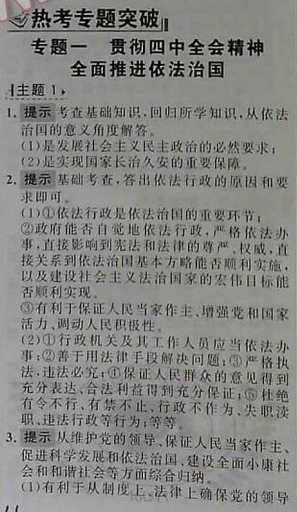 热考专题突破
专题一 贯彻四中全会精神
全面推进依法治国
主题1
1. 提示 考查基础知识,回归所学知识,从依法
治国的意义角度解答。
(1)是发展社会主义民主政治的必然要求;
(2)是实现国家长治久安的重要保障。
2. 提示 基础考查,答出依法行政的原因和要
求即可。
(1)①依法行政是依法治国的重要环节;
②政府能否自觉地依法行政,严格依法办
事,直接影响到宪法和法律的尊严、权威,直
接关系到依法治国基本方略能否顺利实施,
以及建设社会主义法治国家的宏伟目标能
否顺利实现。
③有利于保证人民当家作主、增强党和国家
活力、调动人民积极性。
(2)①行政机关及其工作人员应当依法办
事;②善于用法律手段解决问题;③严格执
法,违法必究;④保证人民群众的意见得到
充分表达、合法利益得到充分保证;⑤杜绝
有令不行、有禁不止、行政不作为、失职渎
职、违法行政等行为;等等。
3. 提示 从维护党的领导、保证人民当家作主、
促进科学发展和依法治国、建设全面小康社
会和和谐社会等方面综合归纳。
(1)有利于从制度上、法律上确保党的领导